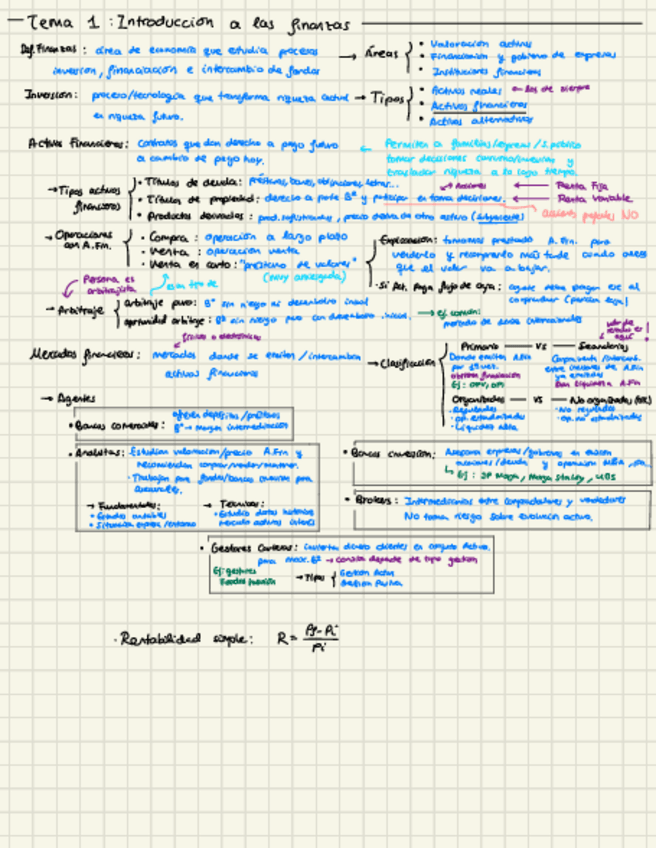 Tema 1: Introducción a las finanzas
Def. Finanzas: área de economía que estudia procesos → Áreas
inversión, financiación e intercambio de fondos
• Valoración activos
• Financiación y gobierno de empresas
• Instituciones financieras
Inversión: proceso/tecnología que transforma riqueza actual → Tipos
en riqueza futura.
• Activos reales ← los de siempre
• Activos financieros
• Activos alternativos
Activos Financieros: contratos que dan derecho a pago futuro
a cambio de pago hoy.
← Permiten a familias/empresas/S. público
tomar decisiones consumo/inversión y
trasladar riqueza a lo largo tiempo.
→ Tipos activos
financieros
• Títulos de deuda: préstamos, bonos, obligaciones, letras...
• Títulos de propiedad: derecho a parte Bº y participar en toma decisiones.
• Productos derivados: prod. sofisticados, precio deriva de otro activo (subyacente)
Acciones
← Renta Fija
← Renta Variable
NO
→ Operaciones
con A.Fin.
• Compra: operación a largo plazo
• Venta: operación venta
• Venta en corto: "préstamo de valores"
(muy arriesgada)
Explicación: tomamos prestado A. Fin. para
venderlo y recomprarlo más tarde cuando
que el valor va a bajar.
• Si Act. paga flujo de caja:
Persona es
arbitrajista
→ Arbitraje
arbitraje puro: Bº sin riesgo ni desembolso inicial
oportunidad arbitraje: Bº sin riesgo pero con desembolso inicial.
→ Ej. común:
mercado de divisas internacionales
físicos o electrónicos
Mercados financieros: mercados donde se emiten/intercambian
activos financieros
→ Clasificación
Primario — VS — Secundarios
Donde emiten A.Fin
por 1ª vez.
obtienen financiación
Ej: OPV, OPS
ya emitidos
Dan liquidez a A.Fin
Organizados — VS — No organizados (OTC)
• Regulados
• op. estandarizadas
• Liquidez alta
• No regulados
• op. no estandarizadas
→ Agentes
ofrecen depósitos/préstamos
• Bancos comerciales: Bº → Margen intermediación
• Analistas: Estudian valoración/precio A.Fin y
recomiendan comprar/vender/mantener.
• Trabajan para fondos/bancos inversión para
asesorarles.
→ Fundamentales:
• Estados contables
• Situación empresa/entorno
→ Técnicos:
• Estudio datos históricos
• Bancos inversión: Asesoran empresas/gobiernos en emisión
acciones/deuda y operaciones M&A,
↳ Ej: JP Morgan, Morgan Stanley, UBS
• Brokers: Intermediarios entre compradores y vendedores
No toman riesgo sobre evolución activo.
• Gestores Carteras: invierten dinero clientes en conjunto Activos.
para max. Bº → comisión depende de tipo gestión
Ej: gestores
Fondos Inversión
→ Tipos
Gestión Activa
Gestión Pasiva
• Rentabilidad simple: R = Pf - Pi / Pi